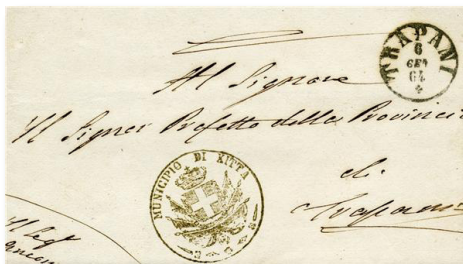 TRAPANI
6
GEN
64
Al Signore
Il Signor Prefetto della Provincia
di
Trapani
MUNICIPIO DI XITTA
Il